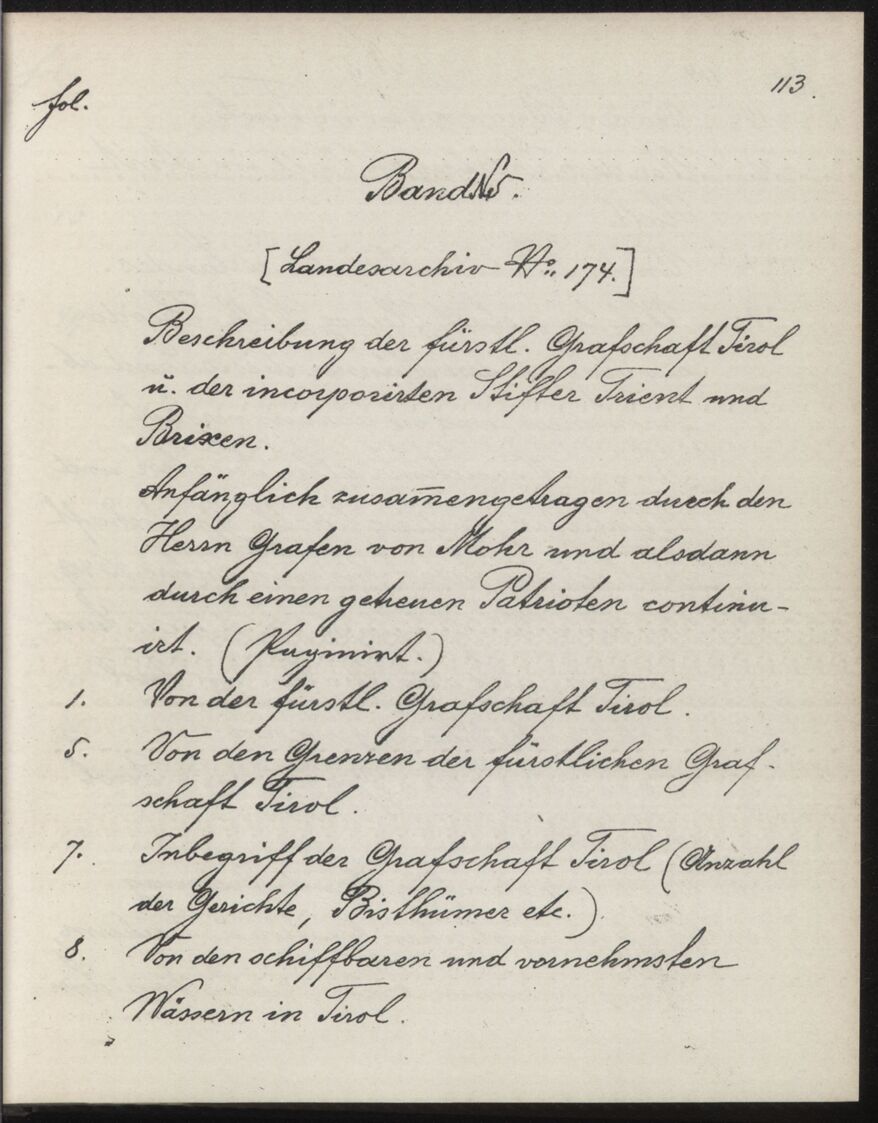 113.
fol.
Band N5.
[Landesarchiv No. 174.]
Beschreibung der fürstl. Grafschaft Tirol
u. der incorporirten Stifter Trient und
Brixen.
Anfänglich zusam̅engetragen durch den
Herrn Grafen von Mohr und alsdann
durch einen getreuen Patrioten continu-
irt. (Paginirt.)
1. Von der fürstl. Grafschaft Tirol.
5. Von den Grenzen der fürstlichen Graf-
schaft Tirol.
7. Inbegriff der Grafschaft Tirol (Anzahl
der Gerichte, Bisthümer etc.)
8. Von den schiffbaren und vornehmsten
Wässern in Tirol.